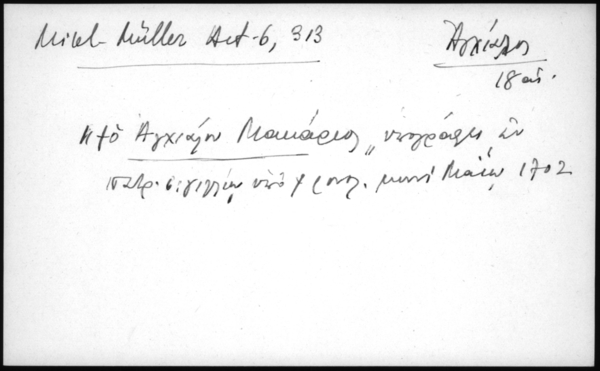 Mikl-Müller Act-6, 313
Ἀγχίαλος
18 αἰ.
Ἀγχιάλου Μακάριος " ὑπογράφει ἐν
πατρ. σιγιλλίῳ ὑπὸ χρονολ. μηνὶ Μαΐῳ 1702